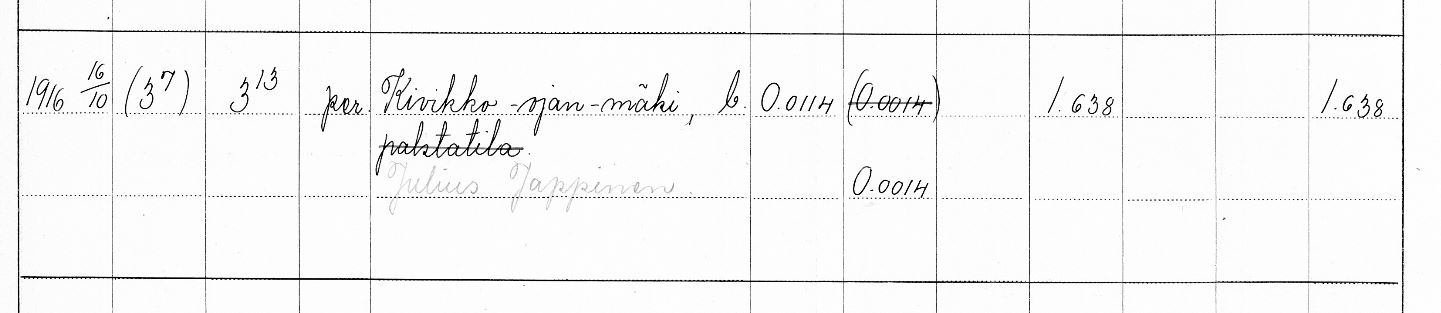 1916 16/10 (3⁷) 3¹³ per. Kivikko-ojan-mäki, b. 0.0114 (0.0014) 1.638 1.638
palstatila.
Julius Jappinen. 0.0014